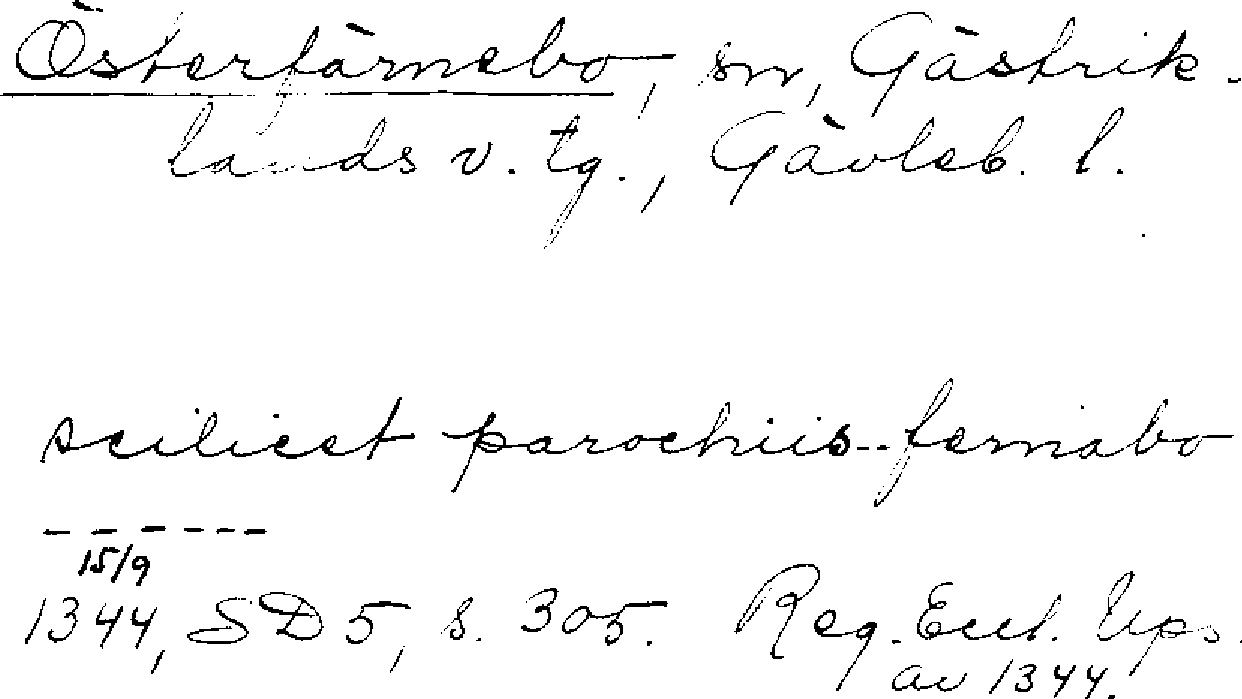 Österfärnebo, sn, Gästrik-
lands v. tg., Gävleb. l.
scilicet parochiis -- fernabo
------
15/9
1344, SD 5, s. 305. Reg. Eccl. Ups.
av 1344.